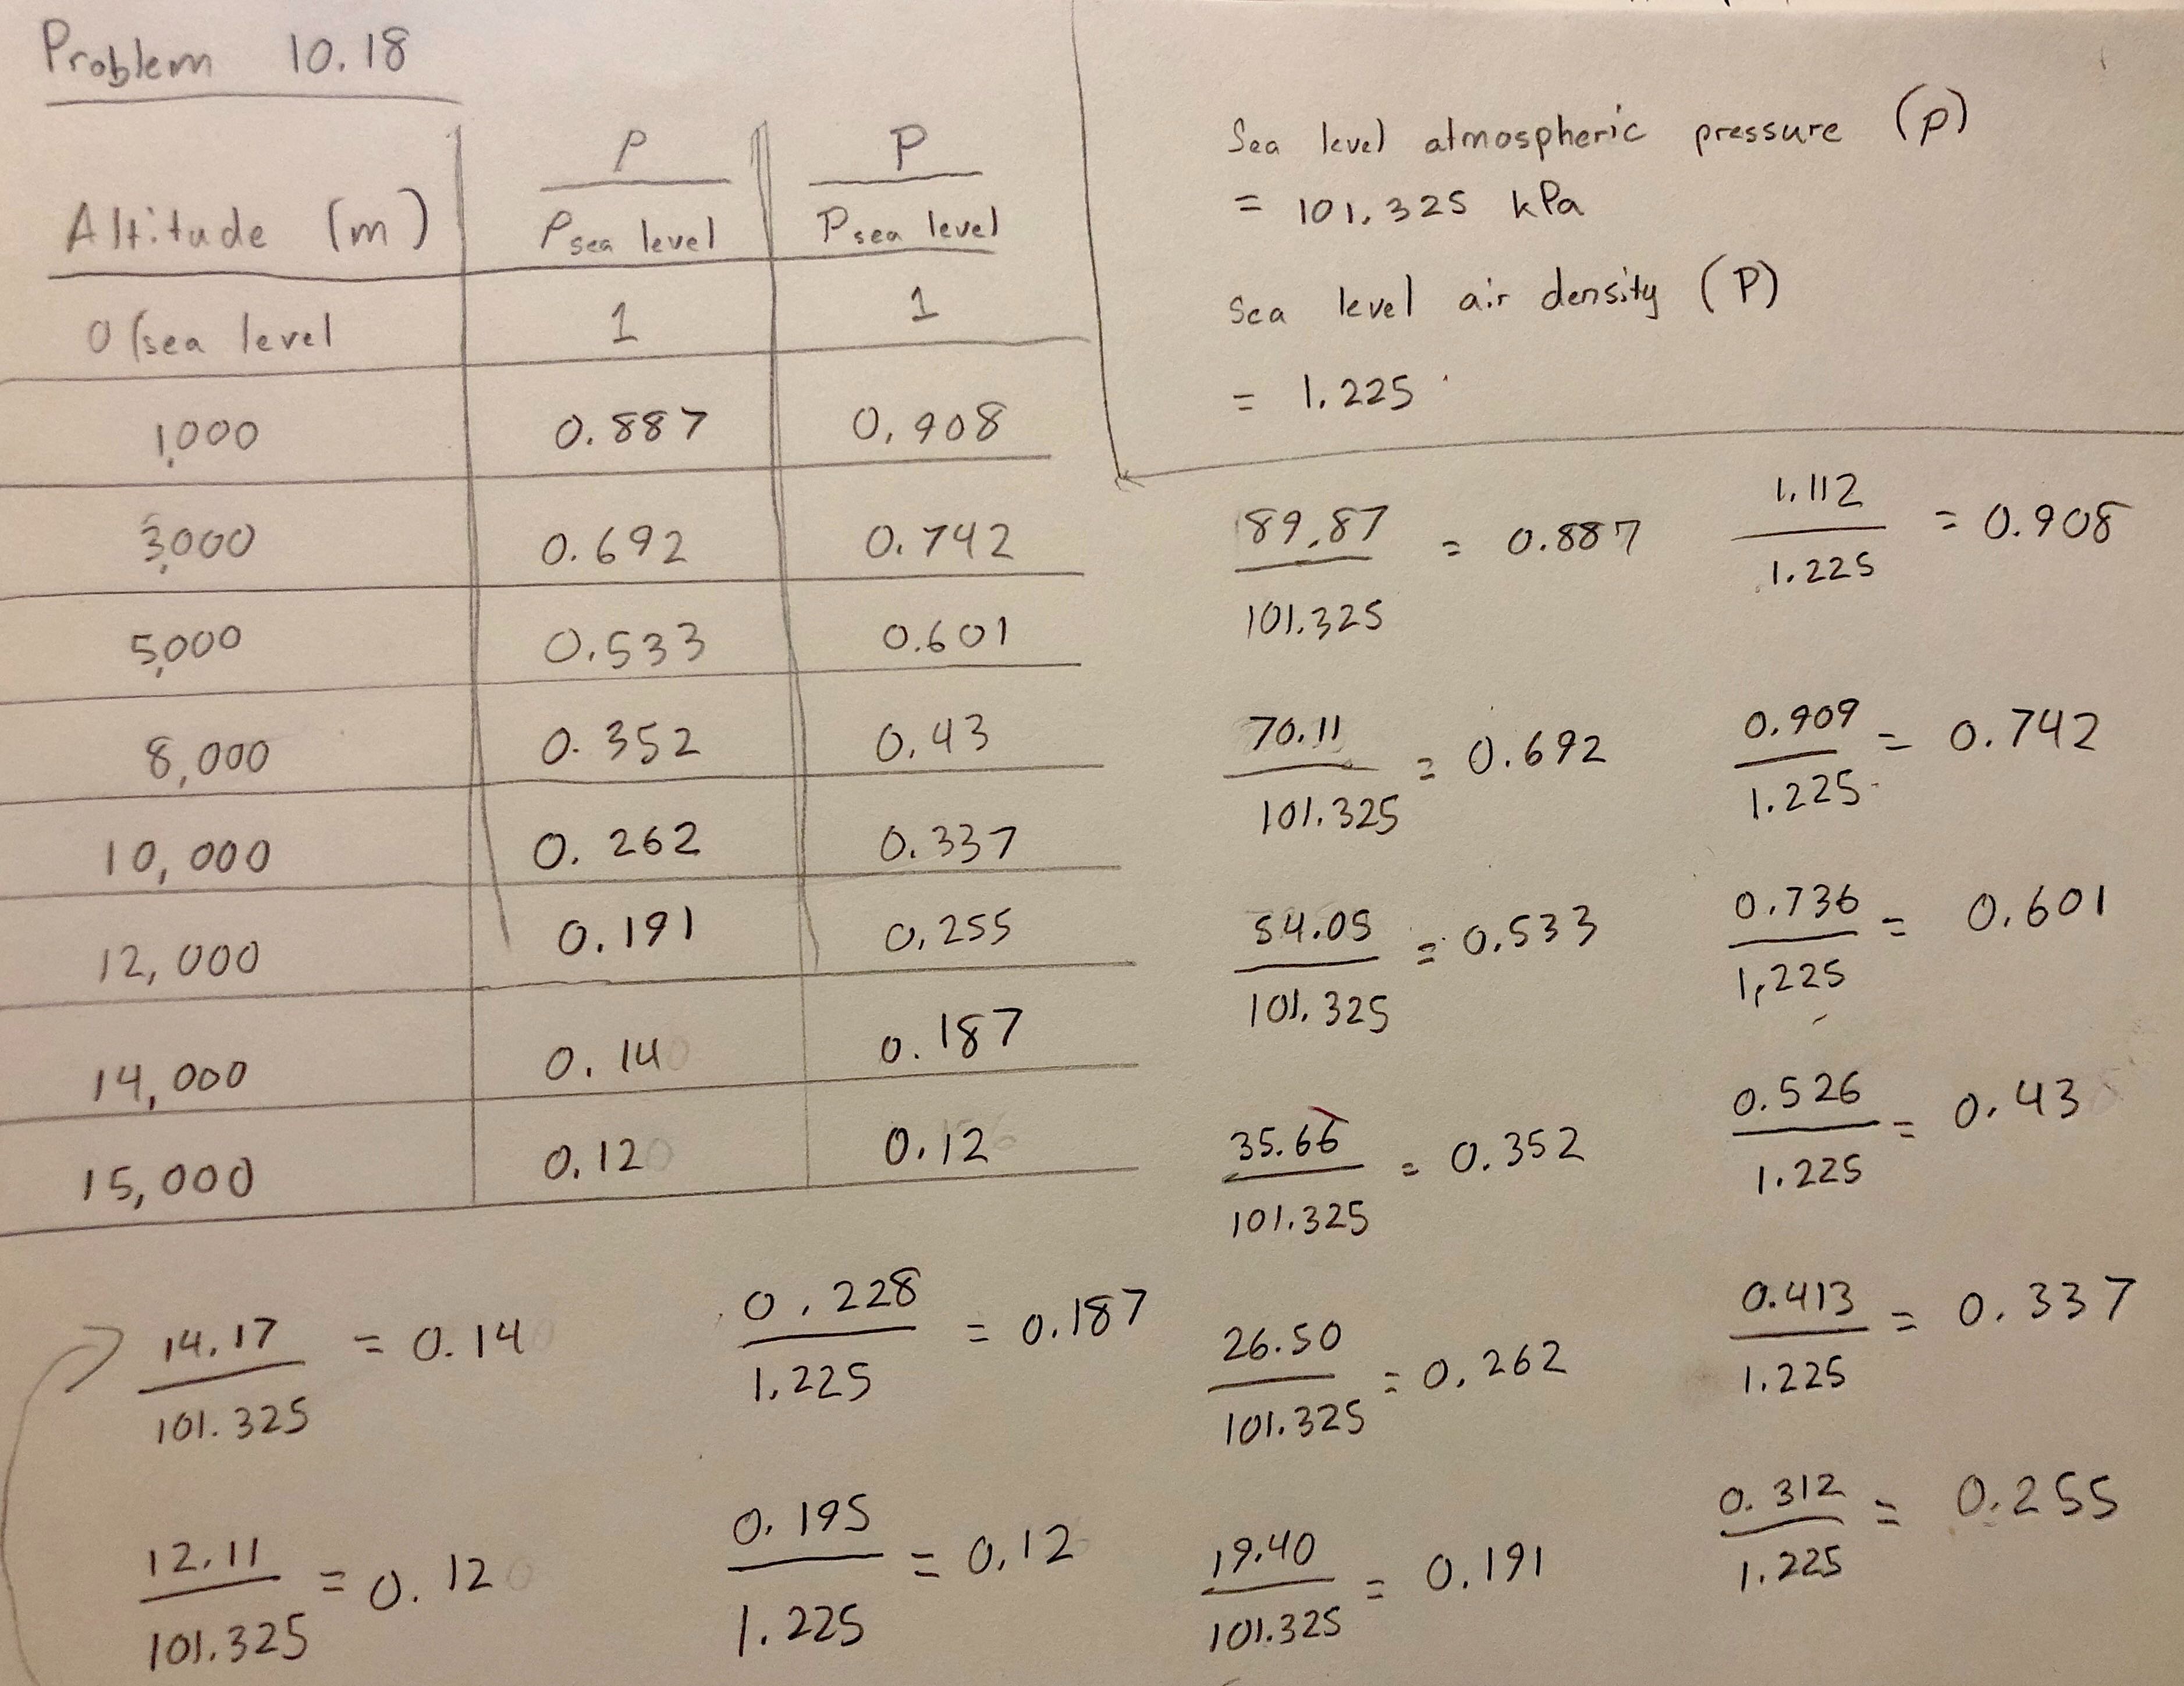 Problem 10.18
Altitude (m) | p / p sea level | P / P sea level
0 (sea level | 1 | 1
1,000 | 0.887 | 0.908
3,000 | 0.692 | 0.742
5,000 | 0.533 | 0.601
8,000 | 0.352 | 0.43
10,000 | 0.262 | 0.337
12,000 | 0.191 | 0.255
14,000 | 0.14 | 0.187
15,000 | 0.12 | 0.12
Sea level atmospheric pressure (p)
= 101.325 kPa
Sea level air density (P)
= 1.225
89.87 / 101.325 = 0.887
1.112 / 1.225 = 0.908
70.11 / 101.325 = 0.692
0.909 / 1.225 = 0.742
54.05 / 101.325 = 0.533
0.736 / 1.225 = 0.601
35.66 / 101.325 = 0.352
0.526 / 1.225 = 0.43
26.50 / 101.325 = 0.262
0.413 / 1.225 = 0.337
19.40 / 101.325 = 0.191
0.312 / 1.225 = 0.255
14.17 / 101.325 = 0.14
0.228 / 1.225 = 0.187
12.11 / 101.325 = 0.12
0.195 / 1.225 = 0.12